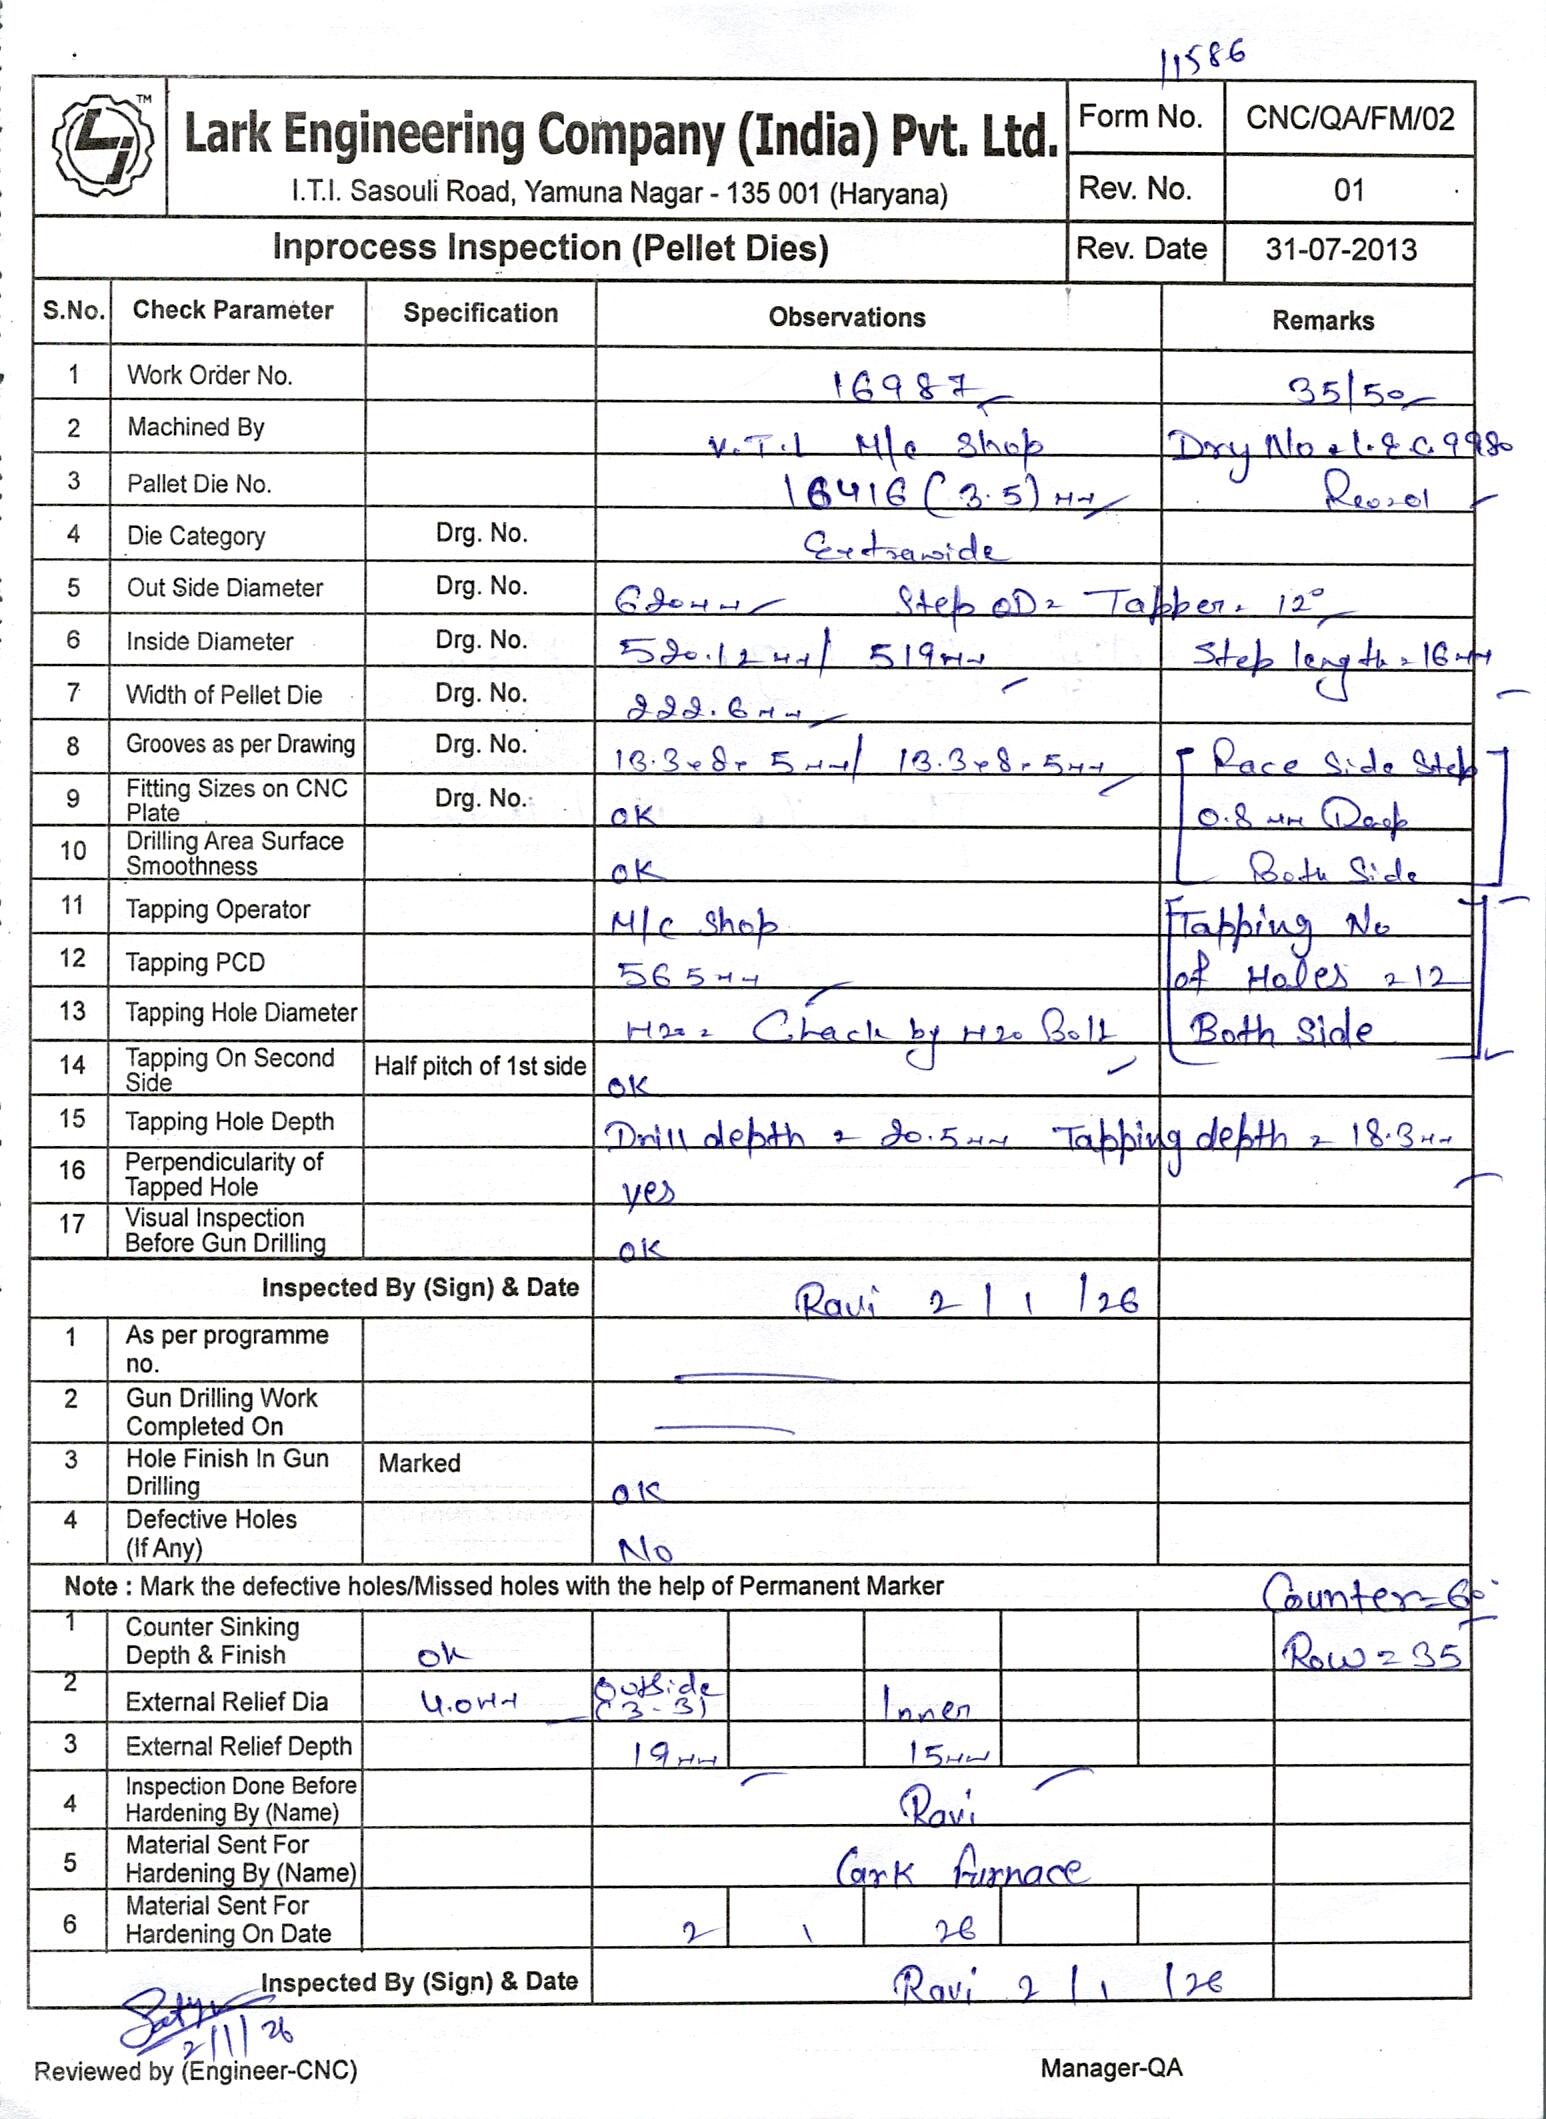 11586
TM
Lark Engineering Company (India) Pvt. Ltd.
I.T.I. Sasouli Road, Yamuna Nagar - 135 001 (Haryana)
Form No. CNC/QA/FM/02
Rev. No. 01
Inprocess Inspection (Pellet Dies) Rev. Date 31-07-2013
S.No. Check Parameter Specification Observations Remarks
1 Work Order No. 16987 35/50
2 Machined By V.T.L M/c Shop Drg No = L.E.C. 9980
3 Pallet Die No. 16416 (3.5) mm Rev=01
4 Die Category Drg. No. Extrawide
5 Out Side Diameter Drg. No. 620mm Step OD = Tapper = 12°
6 Inside Diameter Drg. No. 520.12mm/ 519mm Step length = 16mm
7 Width of Pellet Die Drg. No. 222.6mm
8 Grooves as per Drawing Drg. No. 13.3 8 5mm/ 13.3 8 5mm Race Side Step
9 Fitting Sizes on CNC Plate Drg. No. OK 0.8 mm Deep
10 Drilling Area Surface Smoothness OK Both Side
11 Tapping Operator M/C Shop Tapping No
12 Tapping PCD 565mm of Holes = 12
13 Tapping Hole Diameter M20 = Check by M20 Bolt Both Side
14 Tapping On Second Side Half pitch of 1st side OK
15 Tapping Hole Depth Drill depth = 20.5mm Tapping depth = 18.3mm
16 Perpendicularity of Tapped Hole yes
17 Visual Inspection Before Gun Drilling OK
Inspected By (Sign) & Date Ravi 2/1/26
1 As per programme no.
2 Gun Drilling Work Completed On
3 Hole Finish In Gun Drilling Marked OK
4 Defective Holes (If Any) No
Note : Mark the defective holes/Missed holes with the help of Permanent Marker Counter=60°
1 Counter Sinking Depth & Finish OK Row = 35
2 External Relief Dia 4.0mm Outside (3-3) Inner
3 External Relief Depth 19mm 15mm
4 Inspection Done Before Hardening By (Name) Ravi
5 Material Sent For Hardening By (Name) Lark Furnace
6 Material Sent For Hardening On Date 2 1 26
Inspected By (Sign) & Date Ravi 2/1/26
2/1/26
Reviewed by (Engineer-CNC) Manager-QA